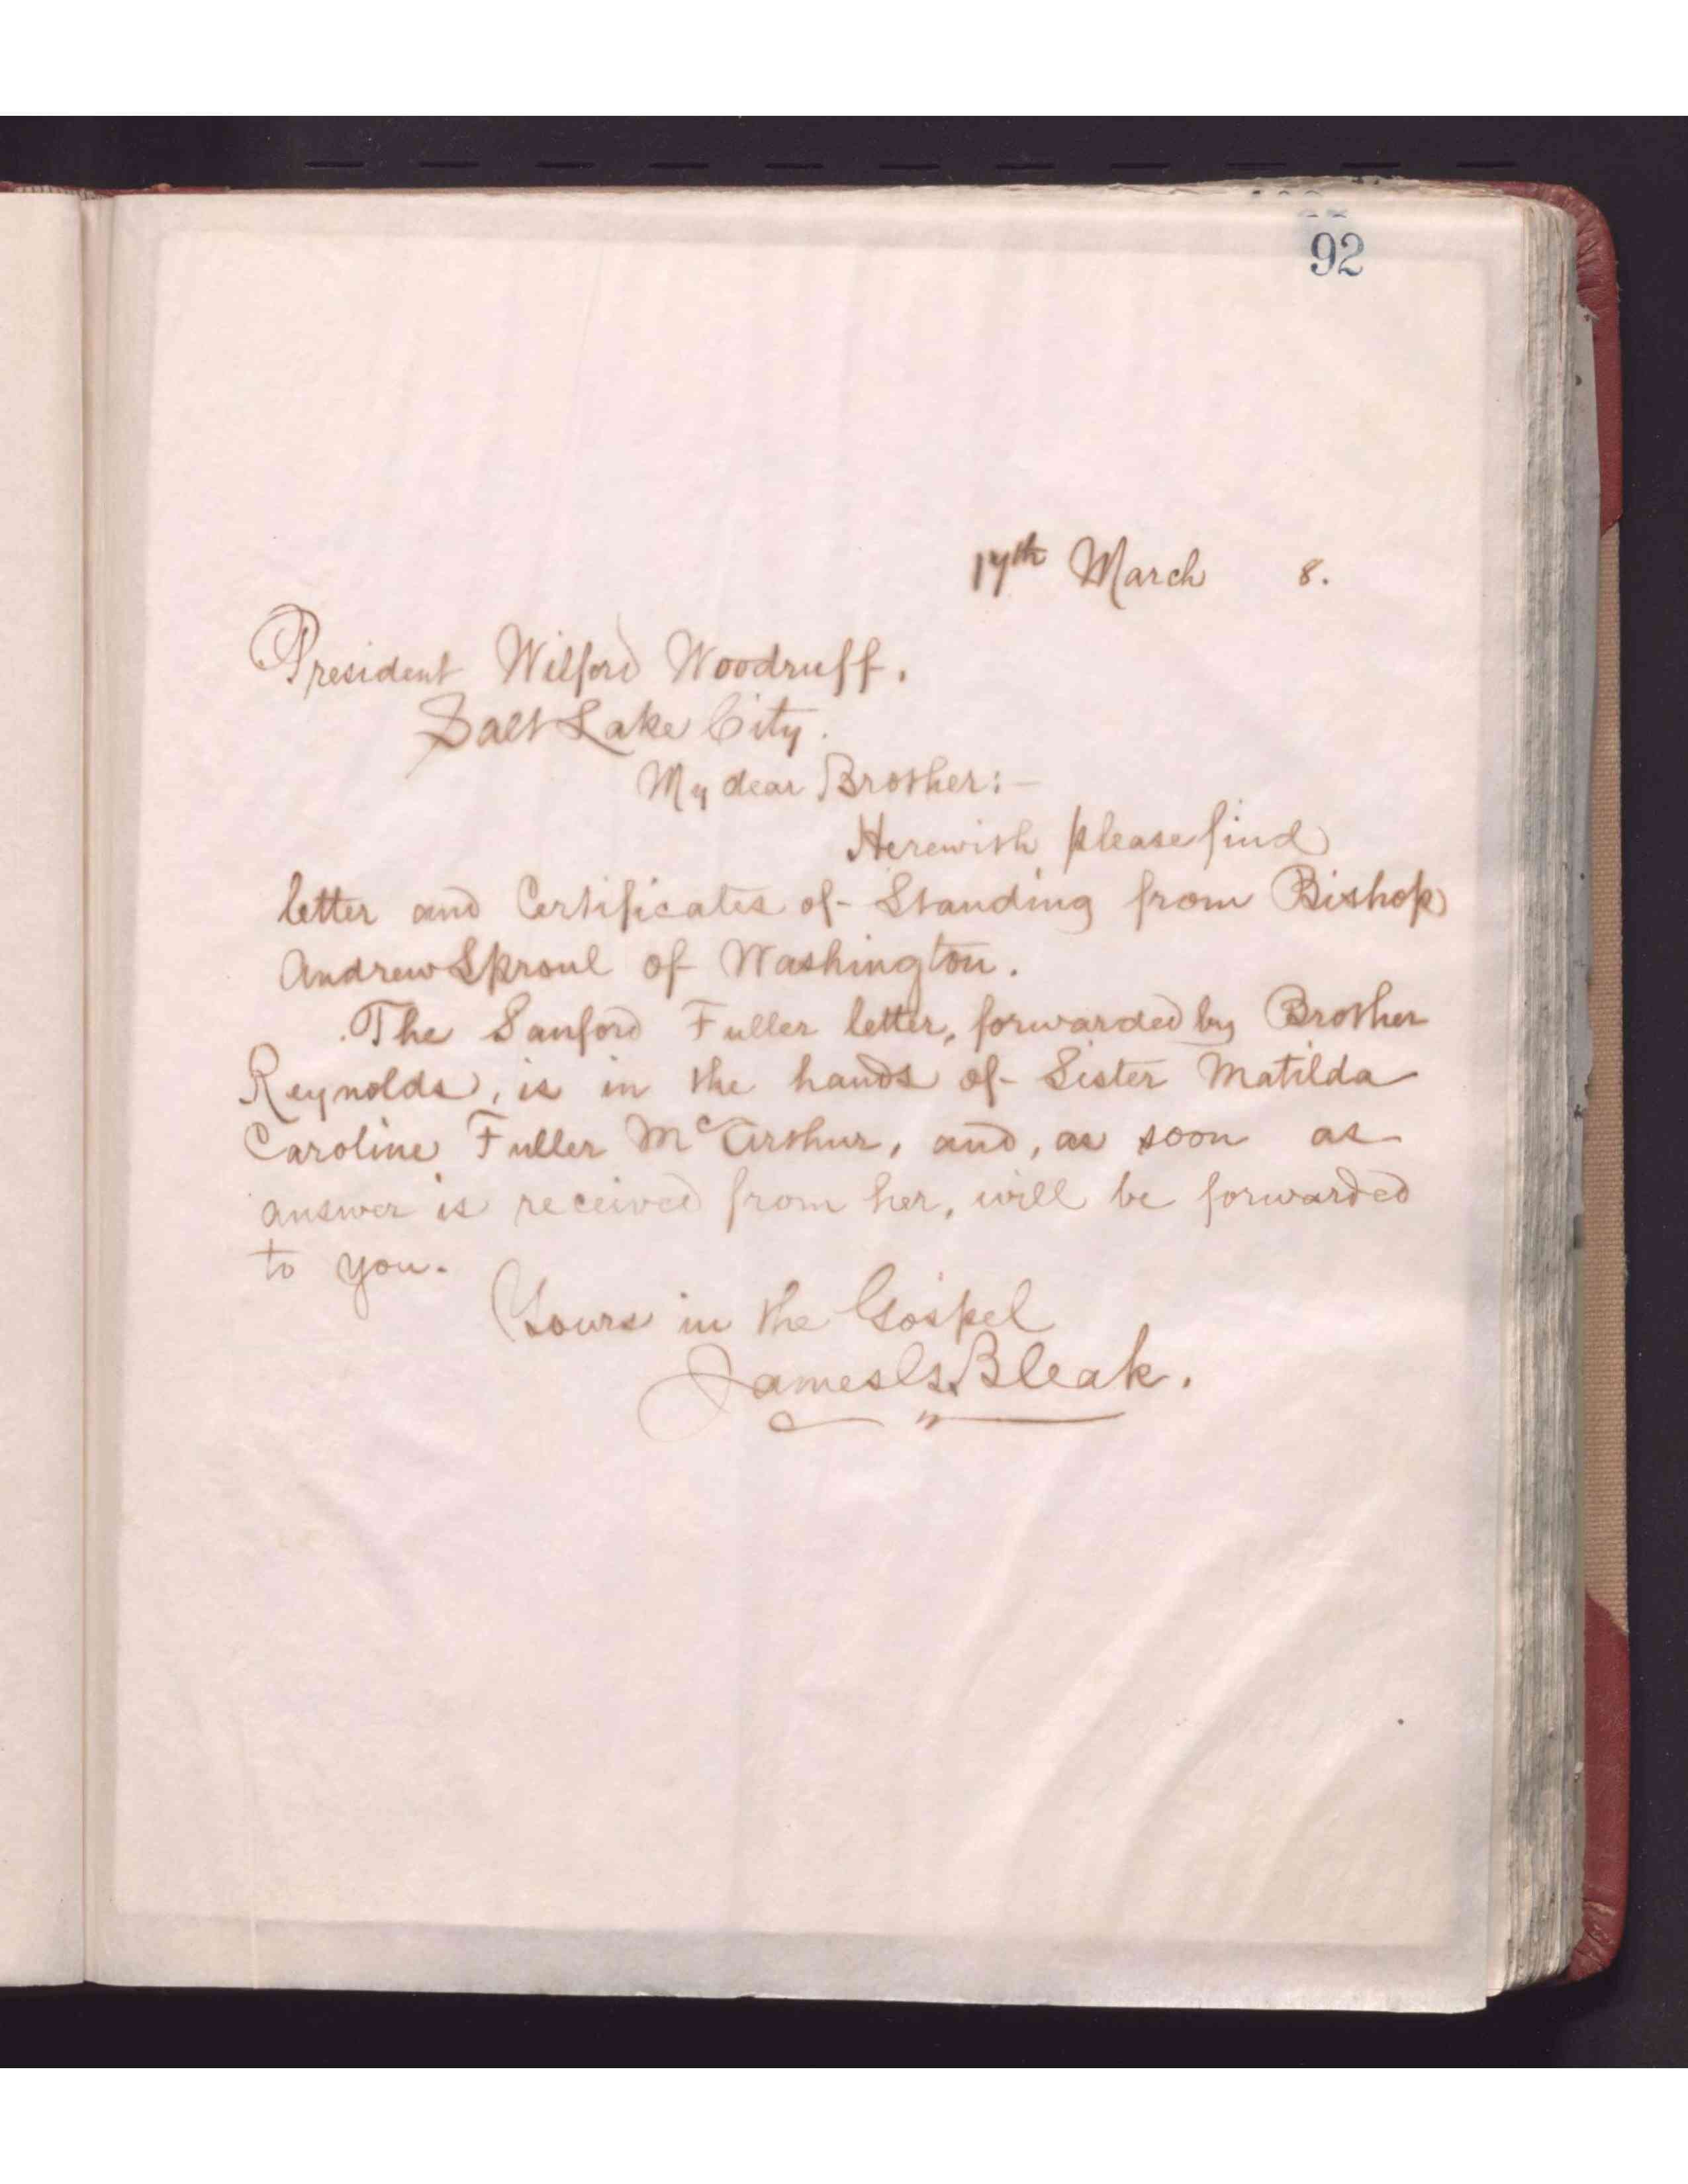 92
17th March 8.
President Wilford Woodruff.
Salt Lake City.
My dear Brother:-
Herewith please find
letter and Certificates of Standing from Bishop
Andrew Sproul of Washington.
The Sanford Fuller letter, forwarded by Brother
Reynolds, is in the hands of Sister Matilda
Caroline Fuller McArthur, and, as soon as
answer is received from her, will be forwarded
to you.
Yours in the Gospel
James G. Bleak.